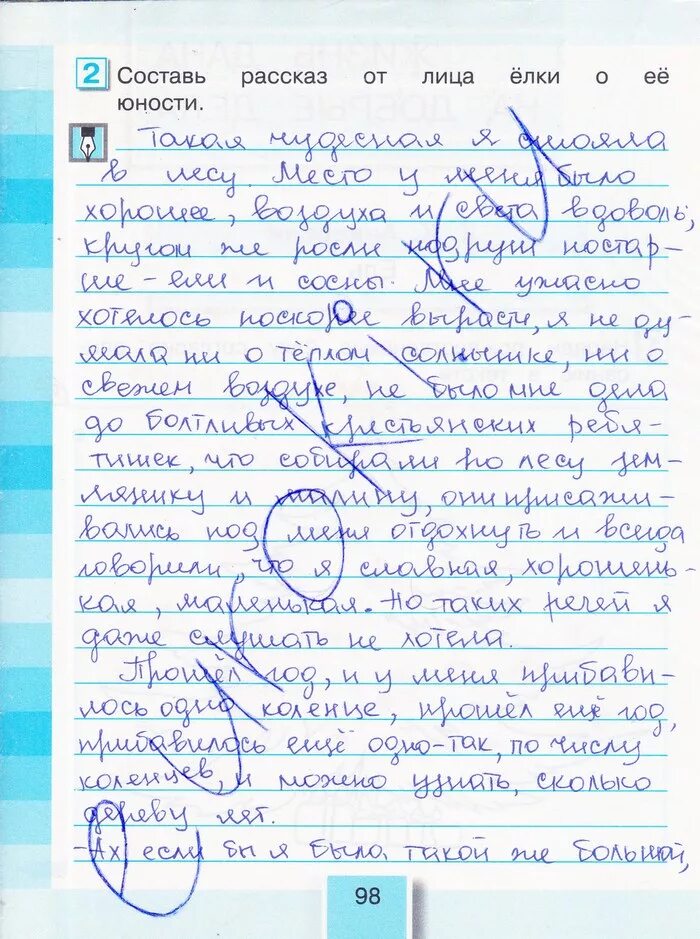 2 Составь рассказ от лица ёлки о её
юности.
Такая чудесная я стояла
в лесу. Место у меня было
хорошее, воздуха и света вдоволь;
кругом же росли подруги постар-
ше - ели и сосны. Мне ужасно
хотелось поскорее вырасти, я не ду-
мала ни о тёплом солнышке, ни о
свежем воздухе, не было мне дела
до болтливых крестьянских ребя-
тишек, что собирали по лесу зем-
лянику и малину, они присажи-
вались под меня отдохнуть и всегда
говорили, что я славная, хорошень-
кая, маленькая. Но таких речей я
даже слушать не хотела.
Прошёл год, и у меня прибави-
лось одно коленце, прошёл ещё год,
прибавилось ещё одно-так, по числу
коленцев, и можно узнать, сколько
дереву лет.
-Ах если бы я была такой же большой,
98